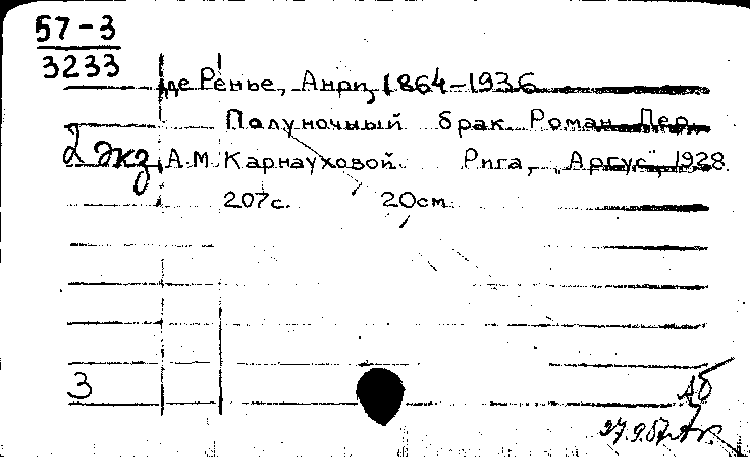 57-3
3233
де Ренье, Анри, 1864-1936
Полуночный брак. Роман. Пер.
2 экз А.М. Карнауховой. Рига, „Аргус", 1928.
207с. 20см.
3
Аб
27.9.57